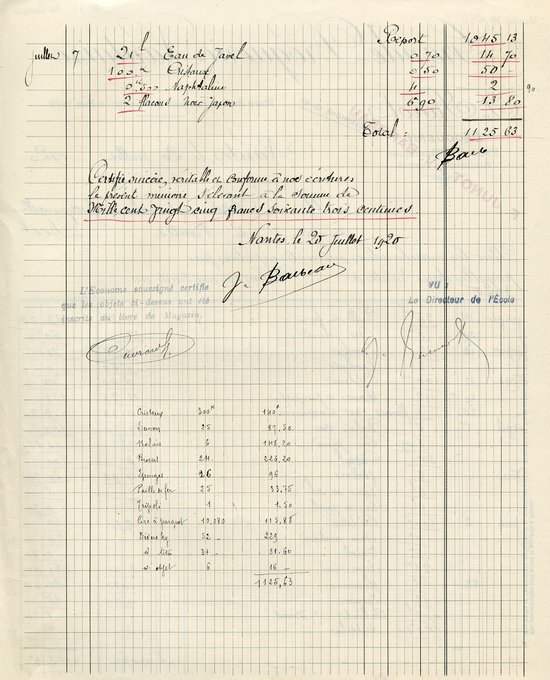 Report 1045 13
Juillet 7 21 l Eau de Javel 0 70 14 70
100 k Cristaux 0 50 50 -
0 k 500 Naphtaline 4 2 -
2 flacons noir Japon 6 90 13 80
Total : 1125 63
Certifié sincère, véritable et conforme à nos écritures
le présent mémoire s'élevant à la somme de
Mille cent vingt cinq francs soixante trois centimes
Nantes, le 20 Juillet 1920
J. Barbeau
L'Econome soussigné certifie
que les objets ci-dessus ont été
inscrits au livre de Magasin.
VU :
Le Directeur de l'École
Cristaux 300 k 140 f
Savon 25 87,50
Balais 6 148,20
Brosses 24 225,20
Éponges 26 96
Paille de fer 25 33,75
Tripoli 1 1,50
Cire à parquet 10,080 115,88
52 - 229
34 - 31.60
d° objet 6 16 -
1125,63